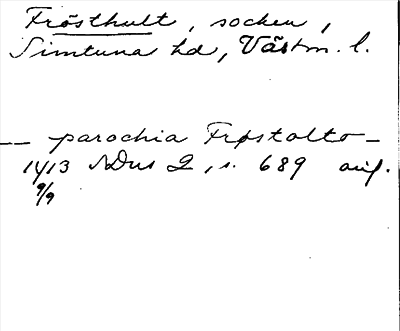 Frösthult, socken,
Simtuna hd, Västm. l.
-- parochia Frøstolto -
1413 SDns 2, s. 689 avf.
9/9